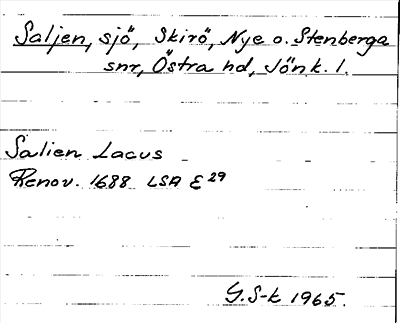 Saljen, sjö, Skirö, Nye o. Stenberga
snr, Östra hd, Jönk. l.
Salien Lacus
Renov. 1688 LSA E 29
G. S-k 1965.